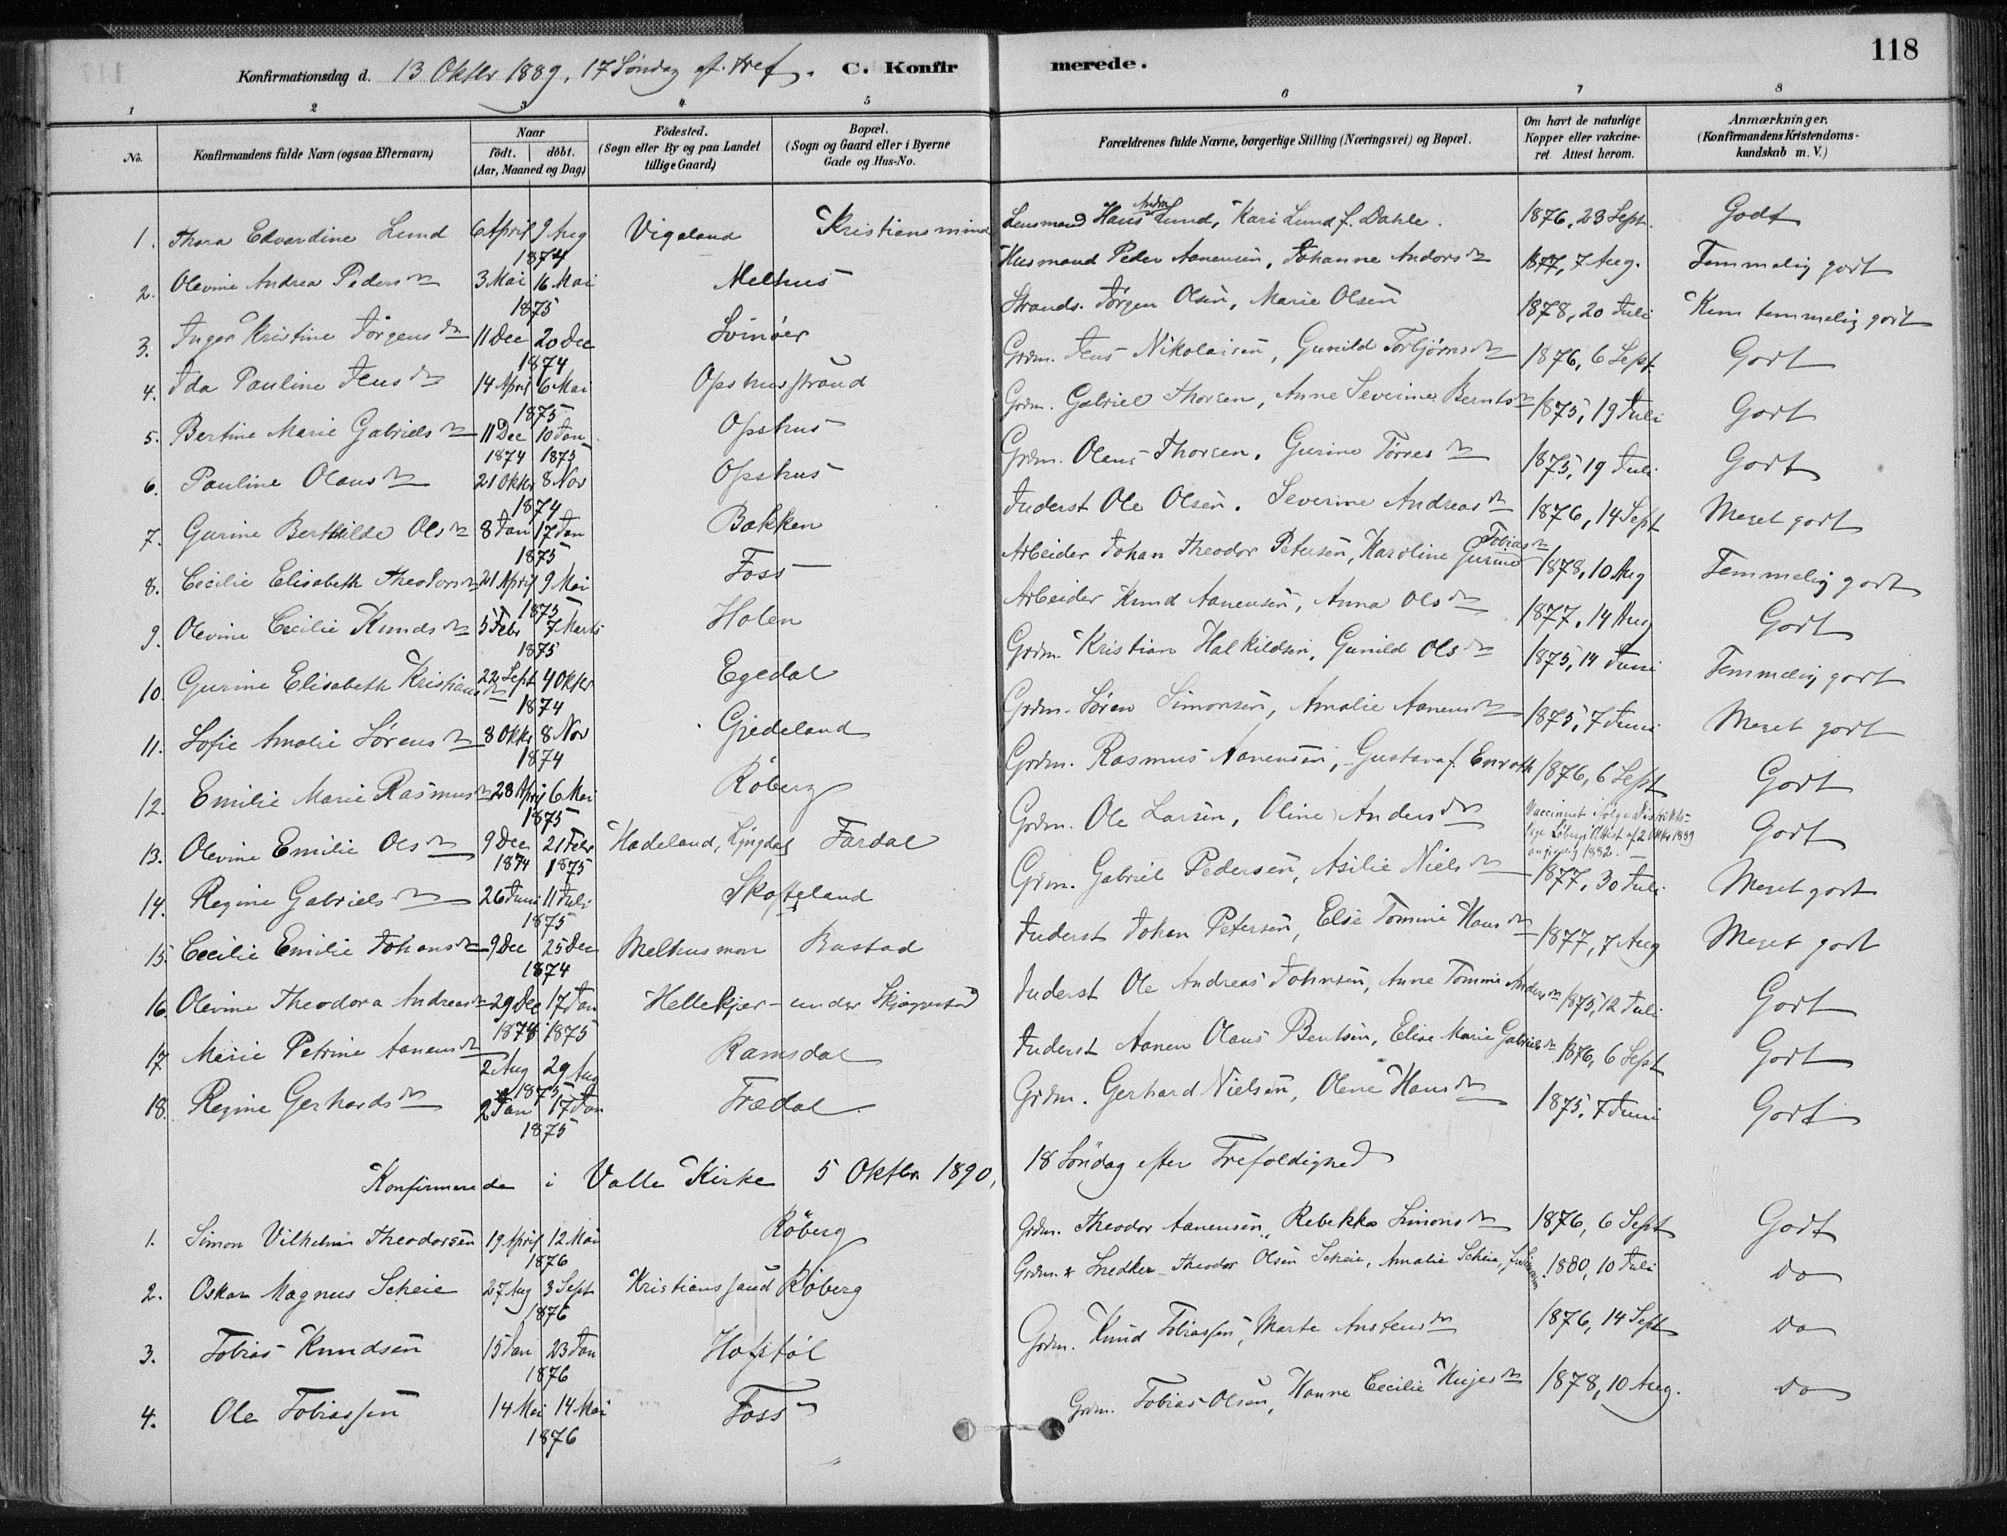 118
Konfirmationsdag d. 13 Oktbr 1889, 17 Søndag ef. Tref. C. Konfirmerede.
1 2 3 4 5 6 7 8
No. Konfirmandens fulde Navn (ogsaa Efternavn) Naar födt. döbt. (Aar, Maaned og Dag) Födested. (Sogn eller By og paa Landet tillige Gaard) Bopæl. (Sogn og Gaard eller i Byerne Gade og Hus-No. Forældrenes fulde Navne, borgerlige Stilling (Næringsvei) og Bopæl. Om havt de naturlige Kopper eller vakcineret. Attest herom. Anmærkninger. (Konfirmandens Kristendomskundskab m. V.)
1. Thora Edvardine Lund 6 April 9 Aug 1874 Vigeland Kristiansmind Lensmand Hans Andr. Lund, Kari Lund f. Dahle. 1876, 23 Sept. Godt
2. Olevine Andrea Pedersdtr 3 Mai 16 Mai 1875 Melhus Husmand Peder Aanensen, Johanne Andorsdtr 1877, 7 Aug. Temmelig godt
3. Inger Kristine Jörgensdtr 11 Dec 20 Dec 1874 Svinöer Strands. Jörgen Olsen, Marie Olsen 1878, 20 Juli Kun temmelig godt
4. Ida Pauline Jensdtr 14 April 6 Mai 1875 Opshusstrand Grdm. Jens Nikolaisen, Gunild Torbjörnsdtr 1876, 6 Sept Godt
5. Bertine Marie Gabrielsdtr 11 Dec 1874 10 Jan 1875 Opshus Grdm. Gabriel Thorsen, Anne Severine Berntsdtr 1875, 19 Juli Godt
6. Pauline Olausdtr 21 Oktbr 8 Nov 1874 Opshus Grdm. Olaus Thorsen, Gurine Törresdtr 1875, 19 Juli Godt
7. Gurine Berthilde Olsdtr 8 Jan 17 Jan 1875 Bakken Inderst Ole Olsen, Severine Andreasdtr 1876, 14 Sept Meget godt
8. Cecilie Elisabeth Theodorsdtr 21 April 9 Mai 1875 Foss Arbeider Johan Theodor Petersen, Karoline Gurine Tobiasdtr 1878, 10 Aug Temmelig godt
9. Olevine Cecilie Knudsdtr 5 Febr 7 Marts 1875 Holen Arbeider Knud Aanensen, Anna Olsdtr 1877, 14 Aug Godt
10. Gurine Elisabeth Kristiansdtr 22 Sept 4 Oktbr 1874 Egedal Grdm. Kristian Halkildsen, Gunild Olsdtr 1875, 14 Juni Temmelig godt
11. Sofie Amalie Sørensdtr 8 Oktbr 8 Nov 1874 Gjedeland Grdm. Sören Simonsen, Amalie Aanensdtr 1875, 7 Juni Meget godt
12. Emilie Marie Rasmusdtr 28 April 6 Mai 1875 Röberg Grdm. Rasmus Aanensen, Gustava f. Enroth 1876, 6 Sept Godt
13. Olevine Emilie Olsdtr 9 Dec 1874 21 Febr 1875 Hadeland, Lyngdal Fardal Grdm. Ole Larsen, Oline Andersdtr Vaccineret ifölge Distriktslæge Attest af 2 Oktbr 1889 1882. Godt
14. Regine Gabrielsdtr 26 Juni 11 Juli 1875 Skofteland Grdm. Gabriel Pedersen, Asilie Nielsdtr 1877, 30 Juli Meget godt
15. Cecilie Emilie Johansdtr 9 Dec 25 Dec 1874 Melhusmon Rustad Inderst Johan Petersen, Else Tomine Hansdtr 1877, 7 Aug Meget godt
16. Olevine Theodora Andreasdtr 29 Dec 1874 17 Jan 1875 Hellekjær under Inderst Ole Andreas Johnsen, Anne Tomine Andersdtr 1875, 12 Juli Godt
17. Marie Petrine Aanensdtr 2 Aug 29 Aug 1875 Ramsdal Inderst Aanen Olaus Bentsen, Elise Marie Gabrielsdtr 1876, 6 Sept Godt
18. Regine Gerhardsdtr 2 Jan 17 Jan 1875 Trædal Grdm. Gerhard Nielsen, Olene Hansdtr 1875, 7 Juni Godt
Konfirmerede i Valle Kirke 5 Oktbr 1890, 18 Söndag efter Trefoldighed
1. Simon Vilhelm Theodorsen 19 April 12 Mai 1876 Röberg Grdm. Theodor Aanensen, Rebekka Simonsdtr 1876, 6 Sept Godt
2. Oskar Magnus Scheie 27 Aug 3 Sept 1876 Kristianssand Röberg Grdm. & Snedker Theodor Olsen Scheie, Amalie Scheie, 1880, 10 Juli do
3. Tobias Knudsen 15 Jan 23 Jan 1876 Höfstöl Grdm. Knud Tobiassen, Marte Austensdtr 1876, 14 Sept do
4. Ole Tobiassen 14 Mai 14 Mai 1876 Foss Grdm. Tobias Olsen, Hanne Cecilie 1878, 10 Aug. do